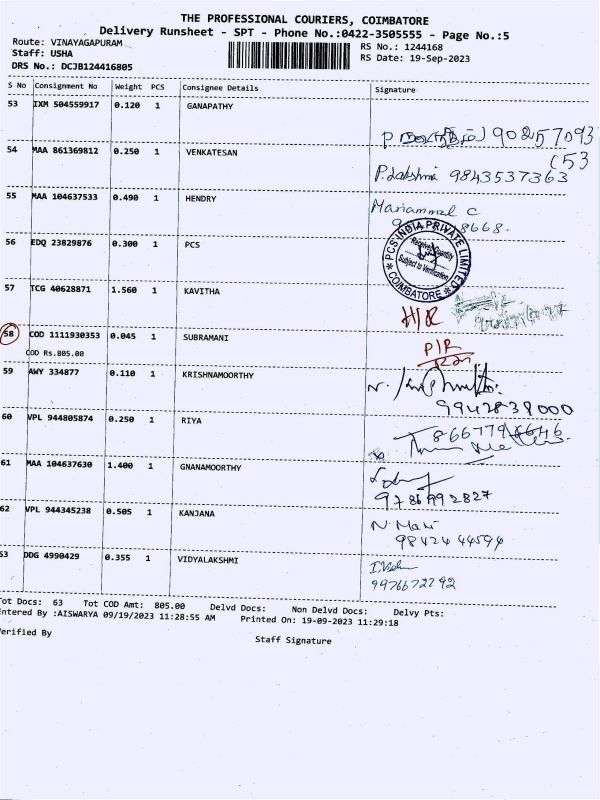 THE PROFESSIONAL COURIERS, COIMBATORE
Delivery Runsheet - SPT - Phone No.:0422-3505555 - Page No.:5
Route: VINAYAGAPURAM
Staff: USHA
DRS No.: DCJB124416805
RS No.: 1244168
RS Date: 19-Sep-2023
S No Consignment No Weight PCS Consignee Details Signature
53 IXM 504559917 0.120 1 GANAPATHY
P 90257093
(53
54 MAA 861369812 0.250 1 VENKATESAN
P. Lakshmi 9843537363
55 MAA 104637533 0.490 1 HENDRY
Mariammal C
8668.
56 EDQ 23829876 0.300 1 PCS
PCS INDIA PRIVATE LIMITED
Received Quantity
Subject to Verification
* COIMBATORE *
57 TCG 40628871 1.560 1 KAVITHA
H/R
58 COD 1111930353 0.045 1 SUBRAMANI
COD Rs.805.00
P/R
59 AWY 334877 0.110 1 KRISHNAMOORTHY
9942838000
60 VPL 944805874 0.250 1 RIYA
61 MAA 104637630 1.400 1 GNANAMOORTHY
9786992827
62 VPL 944345238 0.505 1 KANJANA
N. Mani
98424 44594
53 DDG 4990429 0.355 1 VIDYALAKSHMI
9976672792
Tot Docs: 63 Tot COD Amt: 805.00 Delvd Docs: Non Delvd Docs: Delvy Pts:
Entered By :AISWARYA 09/19/2023 11:28:55 AM Printed On: 19-09-2023 11:29:18
Verified By
Staff Signature